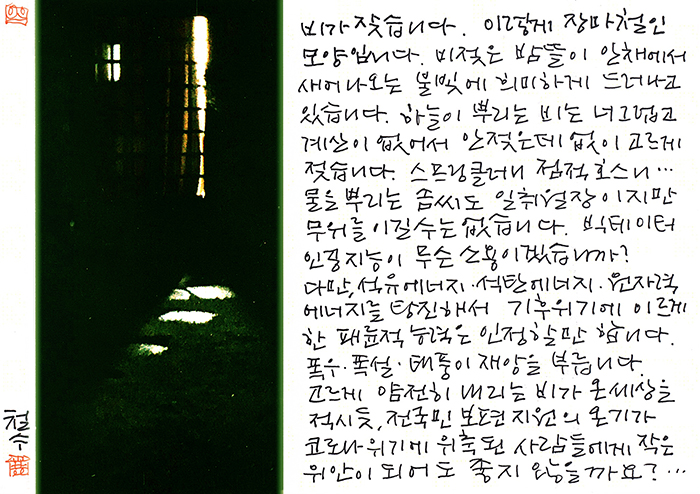 비가 잦습니다. 이렇게 장마철인
모양입니다. 비젖은 밤뜰이 안채에서
새어나오는 불빛에 희미하게 드러나고
있습니다. 하늘이 뿌리는 비는 너그럽고
계산이 없어서 안젖은데 없이 고르게
젖습니다. 스프링클러니 점적호스니…
물을 뿌리는 솜씨도 일취월장이지만
무위를 이길수는 없습니다. 빅데이터
인공지능이 무슨 소용이겠습니까?
다만, 석유에너지·석탄에너지·원자력
에너지를 탕진해서 기후위기에 이르게
한 패륜적 능력은 인정할만 합니다.
폭우·폭설·태풍이 재앙을 부릅니다.
고르게 얌전히 내리는 비가 온세상을
적시듯, 전국민 보편지원의 온기가
코로나위기에 위축된 사람들에게 작은
위안이 되어도 좋지 않을까요?…
철수